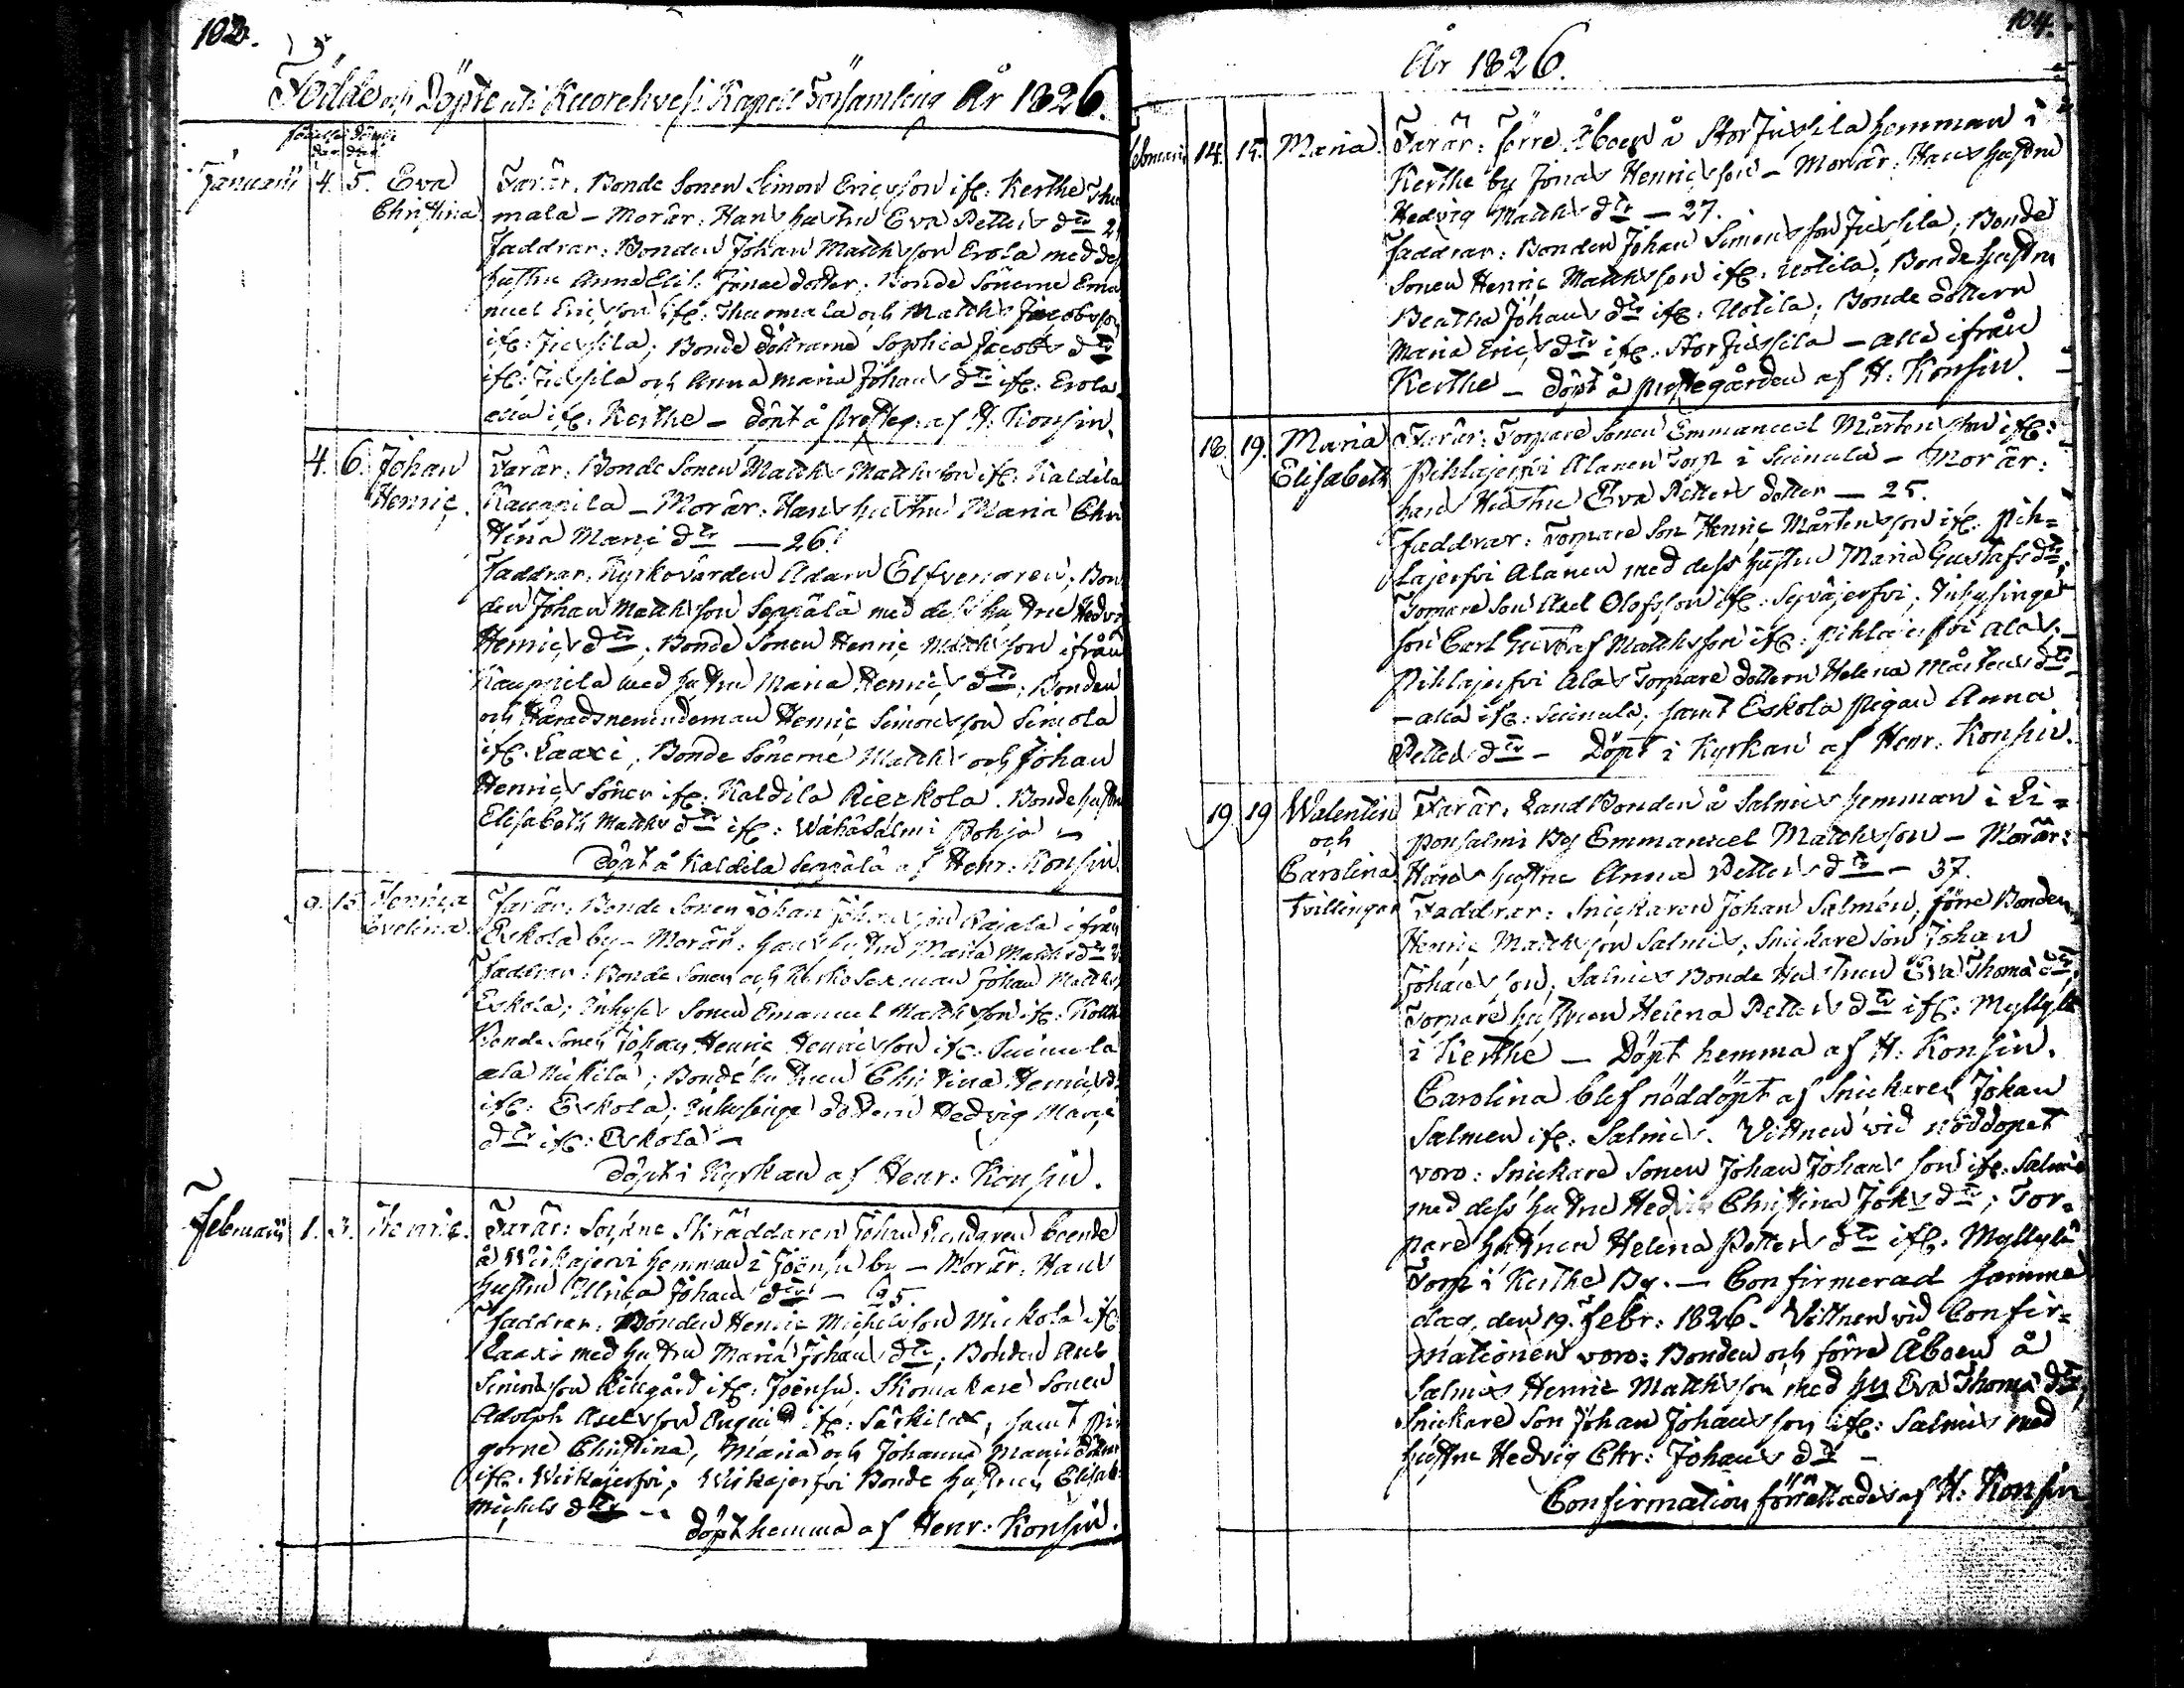 103.
Födde och Döpte uti Kuorehvesi Kapell Församling År 1826.
födelse döpelse
dag dag
Januarii 4. 5. Eva Christina
Far är: Bonde Sonen Simon Ericsson ifr: Kerthe
mala – Mor är: Hans hustru Eva Petters dtr
Faddrar: Bonden Johan Mattsson Erola med des
hustru Anna Elis: Jonae dotter; Bonde Sönerne Ema
nuel Ericsson ifr: Thuomala och Matths Jacobsson
ifr: Jussila; Bonde döttrarne Sophia Jacobs dtr
ifr: Jussila och Anna Maria Johans dtr ifr: Erola
alla ifr: Kerthe – döpt å Presteg: af H: Konsin.
4. 6. Johan Henric.
Far är: Bonde Sonen Matths Matthsson ifr: Kaldila
Kauppila – Mor är: Hans hustru Maria Chri
stina Marci dtr — 26.
Faddrar: Kyrkovärden Adam Elfvengren; Bon
den Johan Matthsson Seppälä med dess hustru Hedvi
Henrics dtr; Bonde Sonen Henric Matthsson ifrån
Kauppila med hustru Maria Henrics dtr; Bonden
och Häradsnemndeman Henric Simonsson Simola
ifr: Laaxi, Bonde Sönerne Matths och Johan
Henrics Söner ifr: Kaldila Rierkola. Bonde hustru
Elisabeth Matths dtr ifr: Wähäsalmi Pohja –
Döpt å Kaldila Seppälä af Henr: Konsin.
9. 15. Henrica Evelina.
Far är: Bonde Sonen Johan Johansson Rajala ifrån
Eskola by – Mor är: hans hustru Maria Matths dtr
Faddrar: Bonde Sonen och Kyrko Sexman Johan Matths
Eskola; Inhyses Sonen Emanuel Matthsson ifr:
Bonde Sonen Johan Henric Henricsson ifr: Suinula
ala Nickilä; Bonde hustrun Christina Henrics d
ifr: Eskola; Inhysinge dottern Hedvig Marci
dtr ifr: Eskola –
Döpt i Kyrkan af Henr: Konsin.
Februarii 1. 3. Henric.
Far är: Sockne Skräddaren Johan boende
å Wirkajervi hemman i Joënsu by – Mor är: Hans
hustru Ulrica Johans dtr – 25.
Faddrar: Bonden Henric Michelsson Mickola ifr
Laaxi med hustru Maria Johans dtr; Bonden Axel
Simonsson Lillgård ifr: Joënsu. Skomakare Sonen
Adolph Axelsson ifr: Särkilax, samt Pi
gorne Christina, Maria och Johanna Marci döttrar
ifr: Wirkajerfvi; Wirkajerfvi Bonde hustrun Elisab
Michels dtr –
döpt hemma af Henr: Konsin.
104.
År 1826.
Februarii 14. 15. Maria.
Far är: Förre Åboen å Stor Jussila hemman i
Kerthe by Jonas Henricsson – Mor är: Hans hustru
Hedvig Matths dtr – 27.
Faddrar: Bonden Johan Simonsson Jussila; Bonde
Sonen Henric Matthsson ifr: Uotila; Bonde hustru
Beatha Johans dtr ifr: Uotila; Bonde dottern
Maria Erics dtr ifr: Stor Jussila – alla ifrån
Kerthe – Döpt å prestegården af H: Konsin.
18. 19. Maria Elisabeth
Far är: Torpare Sonen Emmanuel Mårtensson ifr:
Pihlajerfvi Alanen Torp i Suinula – Mor är:
hans Hustru Eva Petters dotter — 25.
Faddrar: Torpare Son Henric Mårtensson ifr: Pih=
lajerfvi Alanen med dess hustru Maria Gustafs dtr;
Torpare Son Axel Olofsson ifr: Syväjerfvi; Inhysinge
son Carl Gustaf Matthsson ifr: Pihlajerfvi Ala;
Pihlajerfvi Ala Torpare dottern Helena Mårtens dtr
– alla ifr: Suinula; samt Eskola Pigan Anna
Petters dtr – Döpt i Kyrkan af Henr: Konsin.
19. 19 Walentin och Carolina. Tvillingar
Far är: Land Bonden å Salmis hemman i Li=
ponsalmi By Emmanuel Matthsson – Mor är:
Hans hustru Anna Petters dtr – 37.
Faddrar: Snickaren Johan Salmén, förre Bonden
Henric Matthsson Salmis; Snickare Son Johan
Johansson; Salmis Bonde Hustrun Eva Thomæ dtr;
Torpare hustrun Helena Petters dtr ifr: Myllylä
i Kerthe – Döpt hemma af H: Konsin.
Carolina blef nöddöpt af Snickaren Johan
Salmen ifr: Salmis. Vittnen vid nöddopet
voro: Snickare Sonen Johan Johansson ifr: Salmis
med dess hustru Hedvig Christina Johs dtr; Tor=
pare hustrun Helena Petters dtr ifr: Myllylä
Torp i Kerthe By. — Confirmerad samma
dag, den 19. Febr: 1826. Vittnen vid Confir=
mationen voro: Bonden och förre Åboen å
Salmis Henric Matthsson med hu Eva Thomæ dtr,
Snickare Son Johan Johansson ifr: Salmis med
hustru Hedvig Chr: Johans dtr –
Confirmation förrättades af H: Konsin